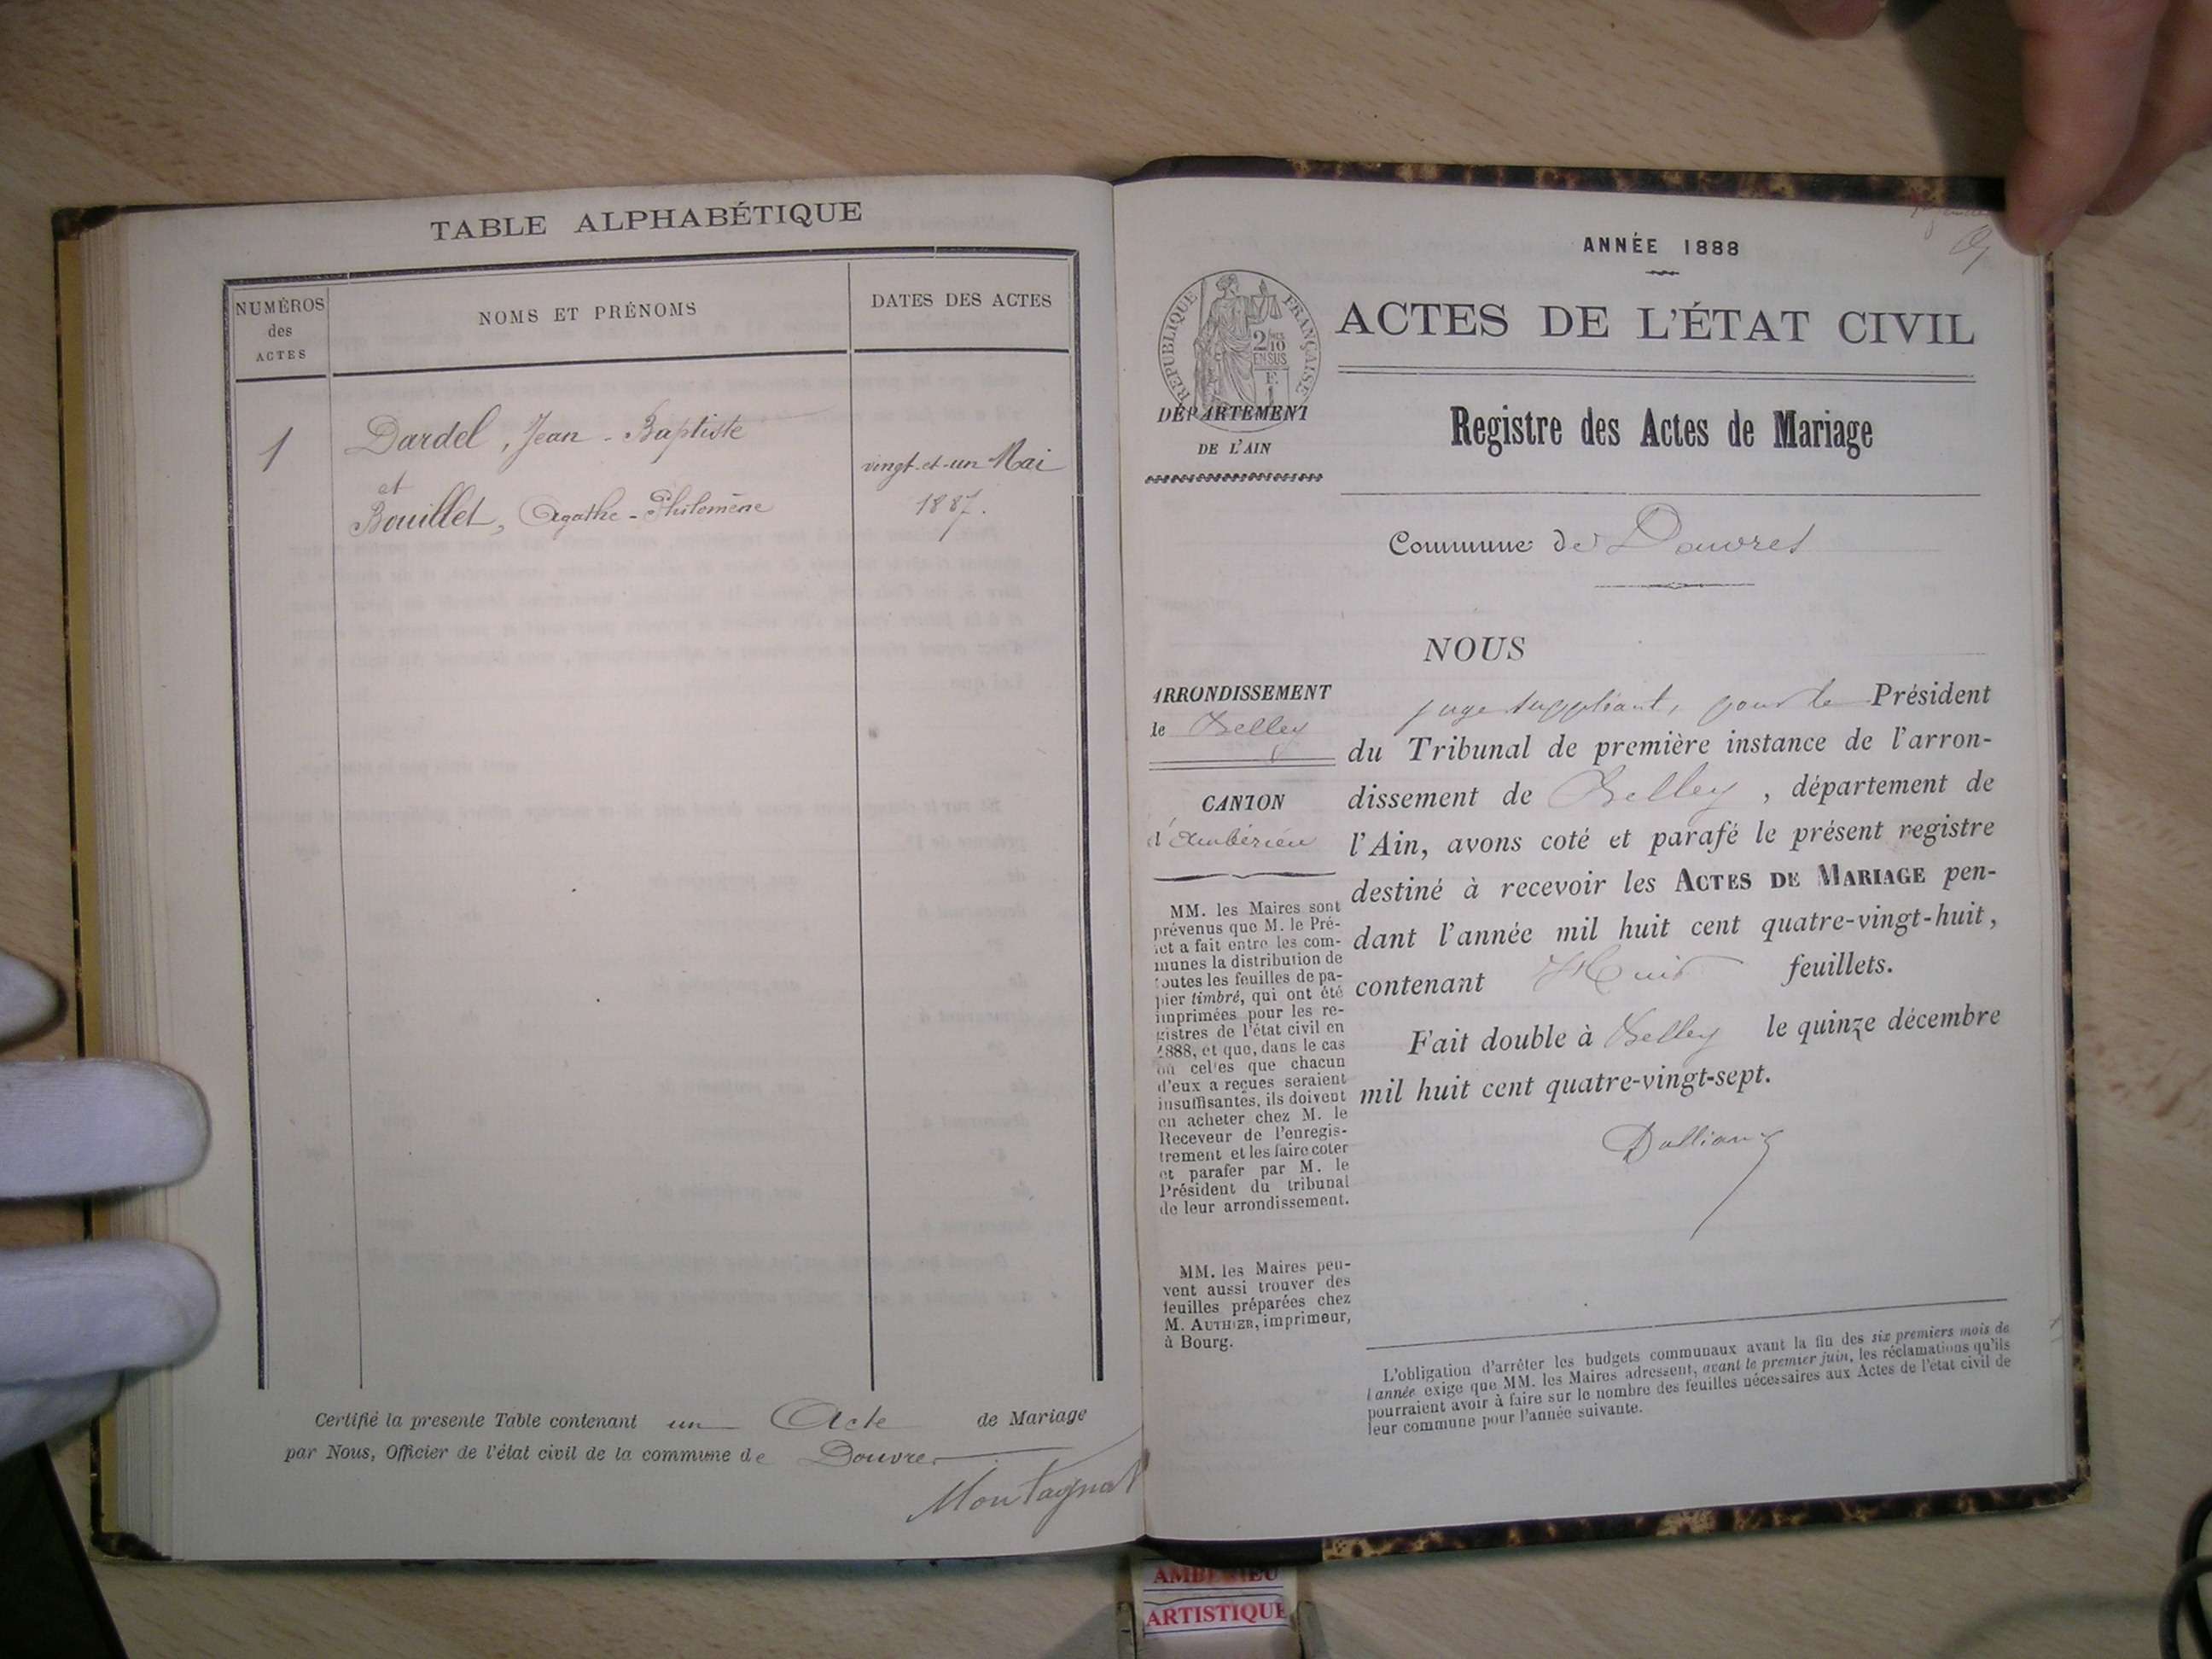 TABLE ALPHABÉTIQUE
NUMÉROS
des
ACTES
NOMS ET PRÉNOMS
DATES DES ACTES
1
Dardel, Jean-Baptiste
et
Bouillet, Agathe-Philomène
vingt-et-un Mai
1887.
Certifié la presente Table contenant un Acte de Mariage
par Nous, Officier de l'état civil de la commune de Douvres
Montagnat
ANNÉE 1888
RÉPUBLIQUE FRANÇAISE
2/10
EN SUS
ACTES DE L'ÉTAT CIVIL
DÉPARTEMENT
DE L'AIN
Registre des Actes de Mariage
Commune de Douvres
NOUS
ARRONDISSEMENT
de Belley
CANTON
d'Ambérieu
MM. les Maires sont
prévenus que M. le Pré-
fet a fait entre les com-
munes la distribution de
toutes les feuilles de pa-
pier timbré, qui ont été
imprimées pour les re-
gistres de l'état civil en
1888, et que, dans le cas
où celles que chacun
d'eux a reçues seraient
insuffisantes, ils doivent
en acheter chez M. le
Receveur de l'enregis-
trement et les faire coter
et parafer par M. le
Président du tribunal
de leur arrondissement.
MM. les Maires peu-
vent aussi trouver des
feuilles préparées chez
M. AUTHIER, imprimeur,
à Bourg.
juge suppléant, pour le Président
du Tribunal de première instance de l'arron-
dissement de Belley, département de
l'Ain, avons coté et parafé le présent registre
destiné à recevoir les ACTES DE MARIAGE pen-
dant l'année mil huit cent quatre-vingt-huit,
contenant Huit feuillets.
Fait double à Belley le quinze décembre
mil huit cent quatre-vingt-sept.
L'obligation d'arrêter les budgets communaux avant la fin des six premiers mois de
l'année exige que MM. les Maires adressent, avant le premier juin, les réclamations qu'ils
pourraient avoir à faire sur le nombre des feuilles nécessaires aux Actes de l'état civil de
leur commune pour l'année suivante.
AMBERIEU
ARTISTIQUE